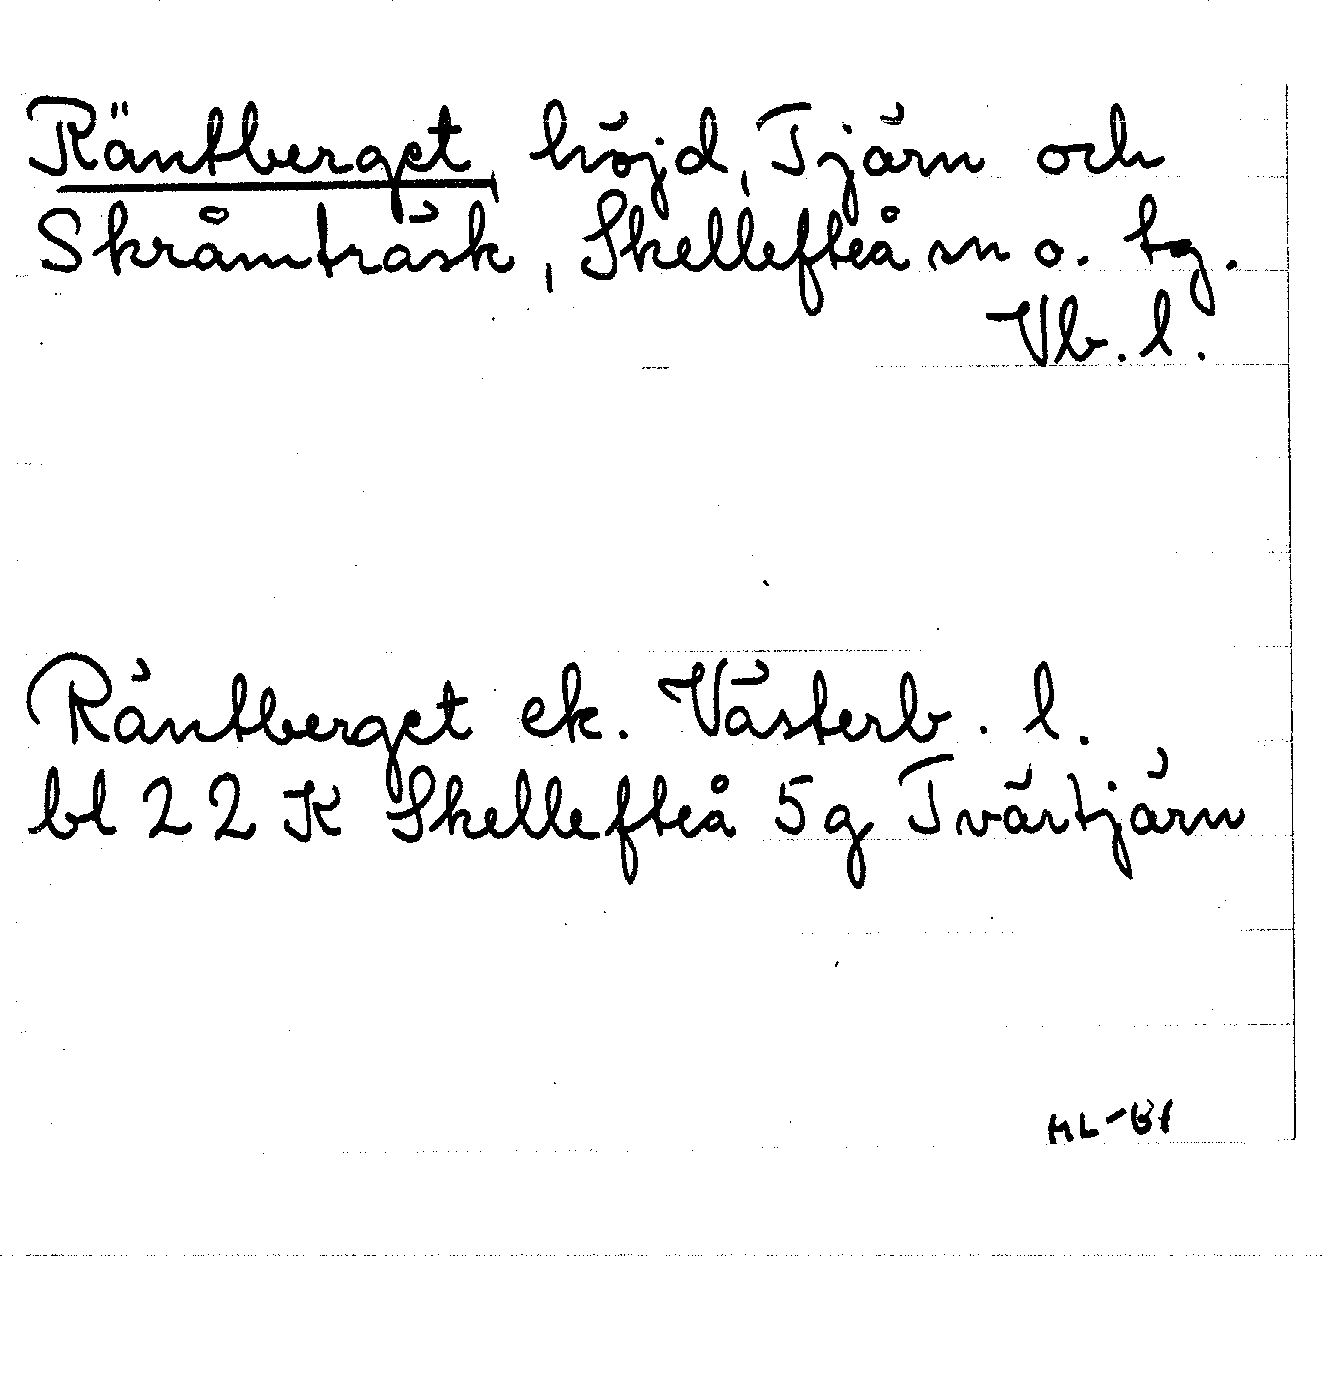 Räntberget, höjd, Tjärn och
Skråmträsk, Skellefteå sn o. tg.
Vb. l.
Räntberget ek. Västerb. l.
bl 22 K Skellefteå 5g Tvärtjärn
HL-81